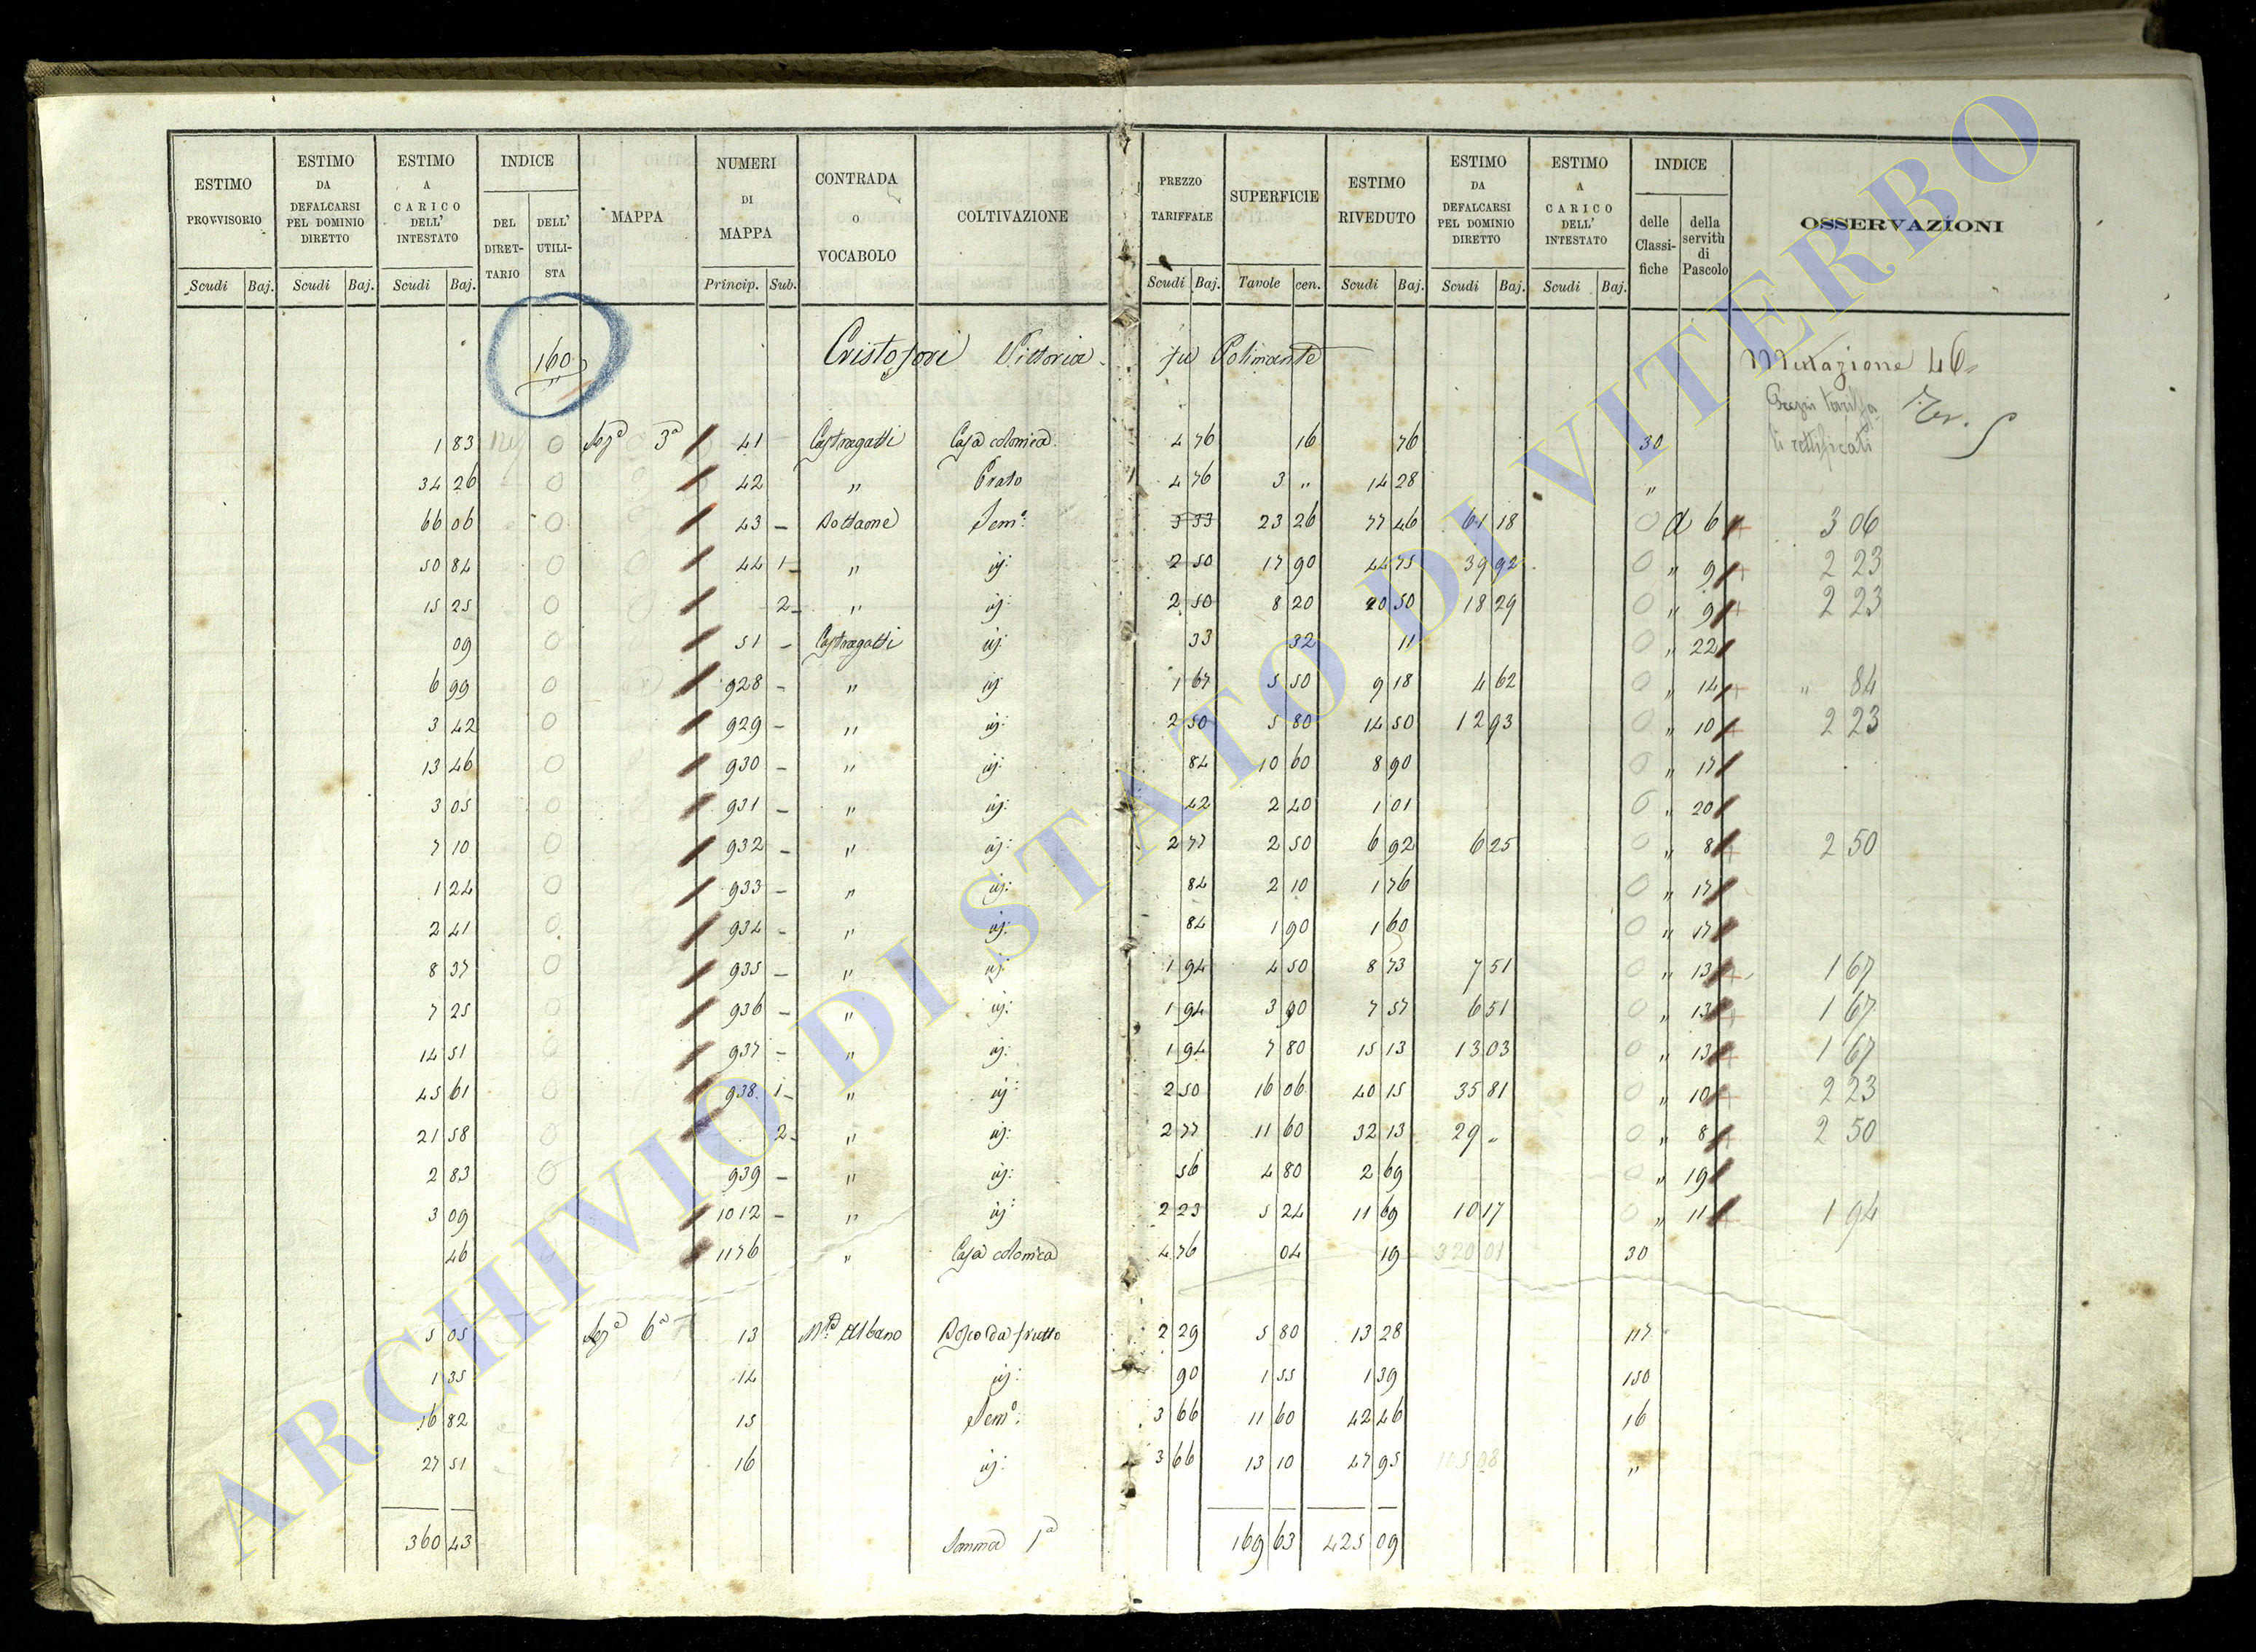 ESTIMO PROVVISORIO Scudi Baj. ESTIMO DA DEFALCARSI PEL DOMINIO DIRETTO Scudi Baj. ESTIMO A CARICO DELL' INTESTATO Scudi Baj. INDICE DEL DIRET-TARIO DELL' UTILI-STA MAPPA NUMERI DI MAPPA Princip. Sub. CONTRADA O VOCABOLO COLTIVAZIONE PREZZO TARIFFALE Scudi Baj. SUPERFICIE Tavole cen. ESTIMO RIVEDUTO Scudi Baj. ESTIMO DA DEFALCARSI PEL DOMINIO DIRETTO Scudi Baj. ESTIMO A CARICO DELL' INTESTATO Scudi Baj. INDICE delle Classi-fiche della servitù di Pascolo OSSERVAZIONI
160 Cristofori Vittoria fu Polimante Mutazione 46
Prezzi tariffa
li rettificati
1 83 0 Sez.a 3a 41 Castragatti Casa colonica 4 76 16 76 30
34 26 0 42 " Prato 4 76 3 " 14 28 "
66 06 0 43 – Bottaone Sem.o 3 33 23 26 77 46 61 18 0 a 6 3 06
50 84 0 44 1 – " ij: 2 50 17 90 44 75 39 92 0 " 9 2 23
15 25 0 2 – " ij: 2 50 8 20 20 50 18 29 0 " 9 2 23
09 0 51 – Castragatti ij: 33 32 11 0 " 22
6 99 0 928 – " ij: 1 67 5 50 9 18 4 62 0 " 14 " 84
3 42 0 929 – " ij: 2 50 5 80 14 50 12 93 0 " 10 2 23
13 46 0 930 – " ij: 84 10 60 8 90 0 " 17
3 05 0 931 – " ij: 42 2 40 1 01 0 " 20
7 10 0 932 – " ij: 2 77 2 50 6 92 6 25 0 " 8 2 50
1 24 0 933 – " ij: 84 2 10 1 76 0 " 17
2 41 0 934 – " ij: 84 1 90 1 60 0 " 17
8 37 0 935 – " ij: 1 94 4 50 8 73 7 51 0 " 13 1 67
7 25 0 936 – " ij: 1 94 3 90 7 57 6 51 0 " 13 1 67
14 51 0 937 – " ij: 1 94 7 80 15 13 13 03 0 " 13 1 67
45 61 0 938 1 – " ij: 2 50 16 06 40 15 35 81 0 " 10 2 23
21 58 0 2 – " ij: 2 77 11 60 32 13 29 " 0 " 8 2 50
2 83 0 939 – " ij: 56 4 80 2 69 0 " 19
3 09 1012 – " ij: 2 23 5 24 11 69 10 17 0 " 11 1 94
46 1176 " Casa colonica 4 76 04 19 320 01 30
5 05 Sez.a 6a 13 M.te Albano Bosco da frutto 2 29 5 80 13 28 117
1 35 14 ij: 90 1 55 1 39 150
16 82 15 Sem.o 3 66 11 60 42 46 16
27 51 16 ij: 3 66 13 10 47 95 105 08 "
360 43 Somma 1a 169 63 425 09
ARCHIVIO DI STATO DI VITERBO